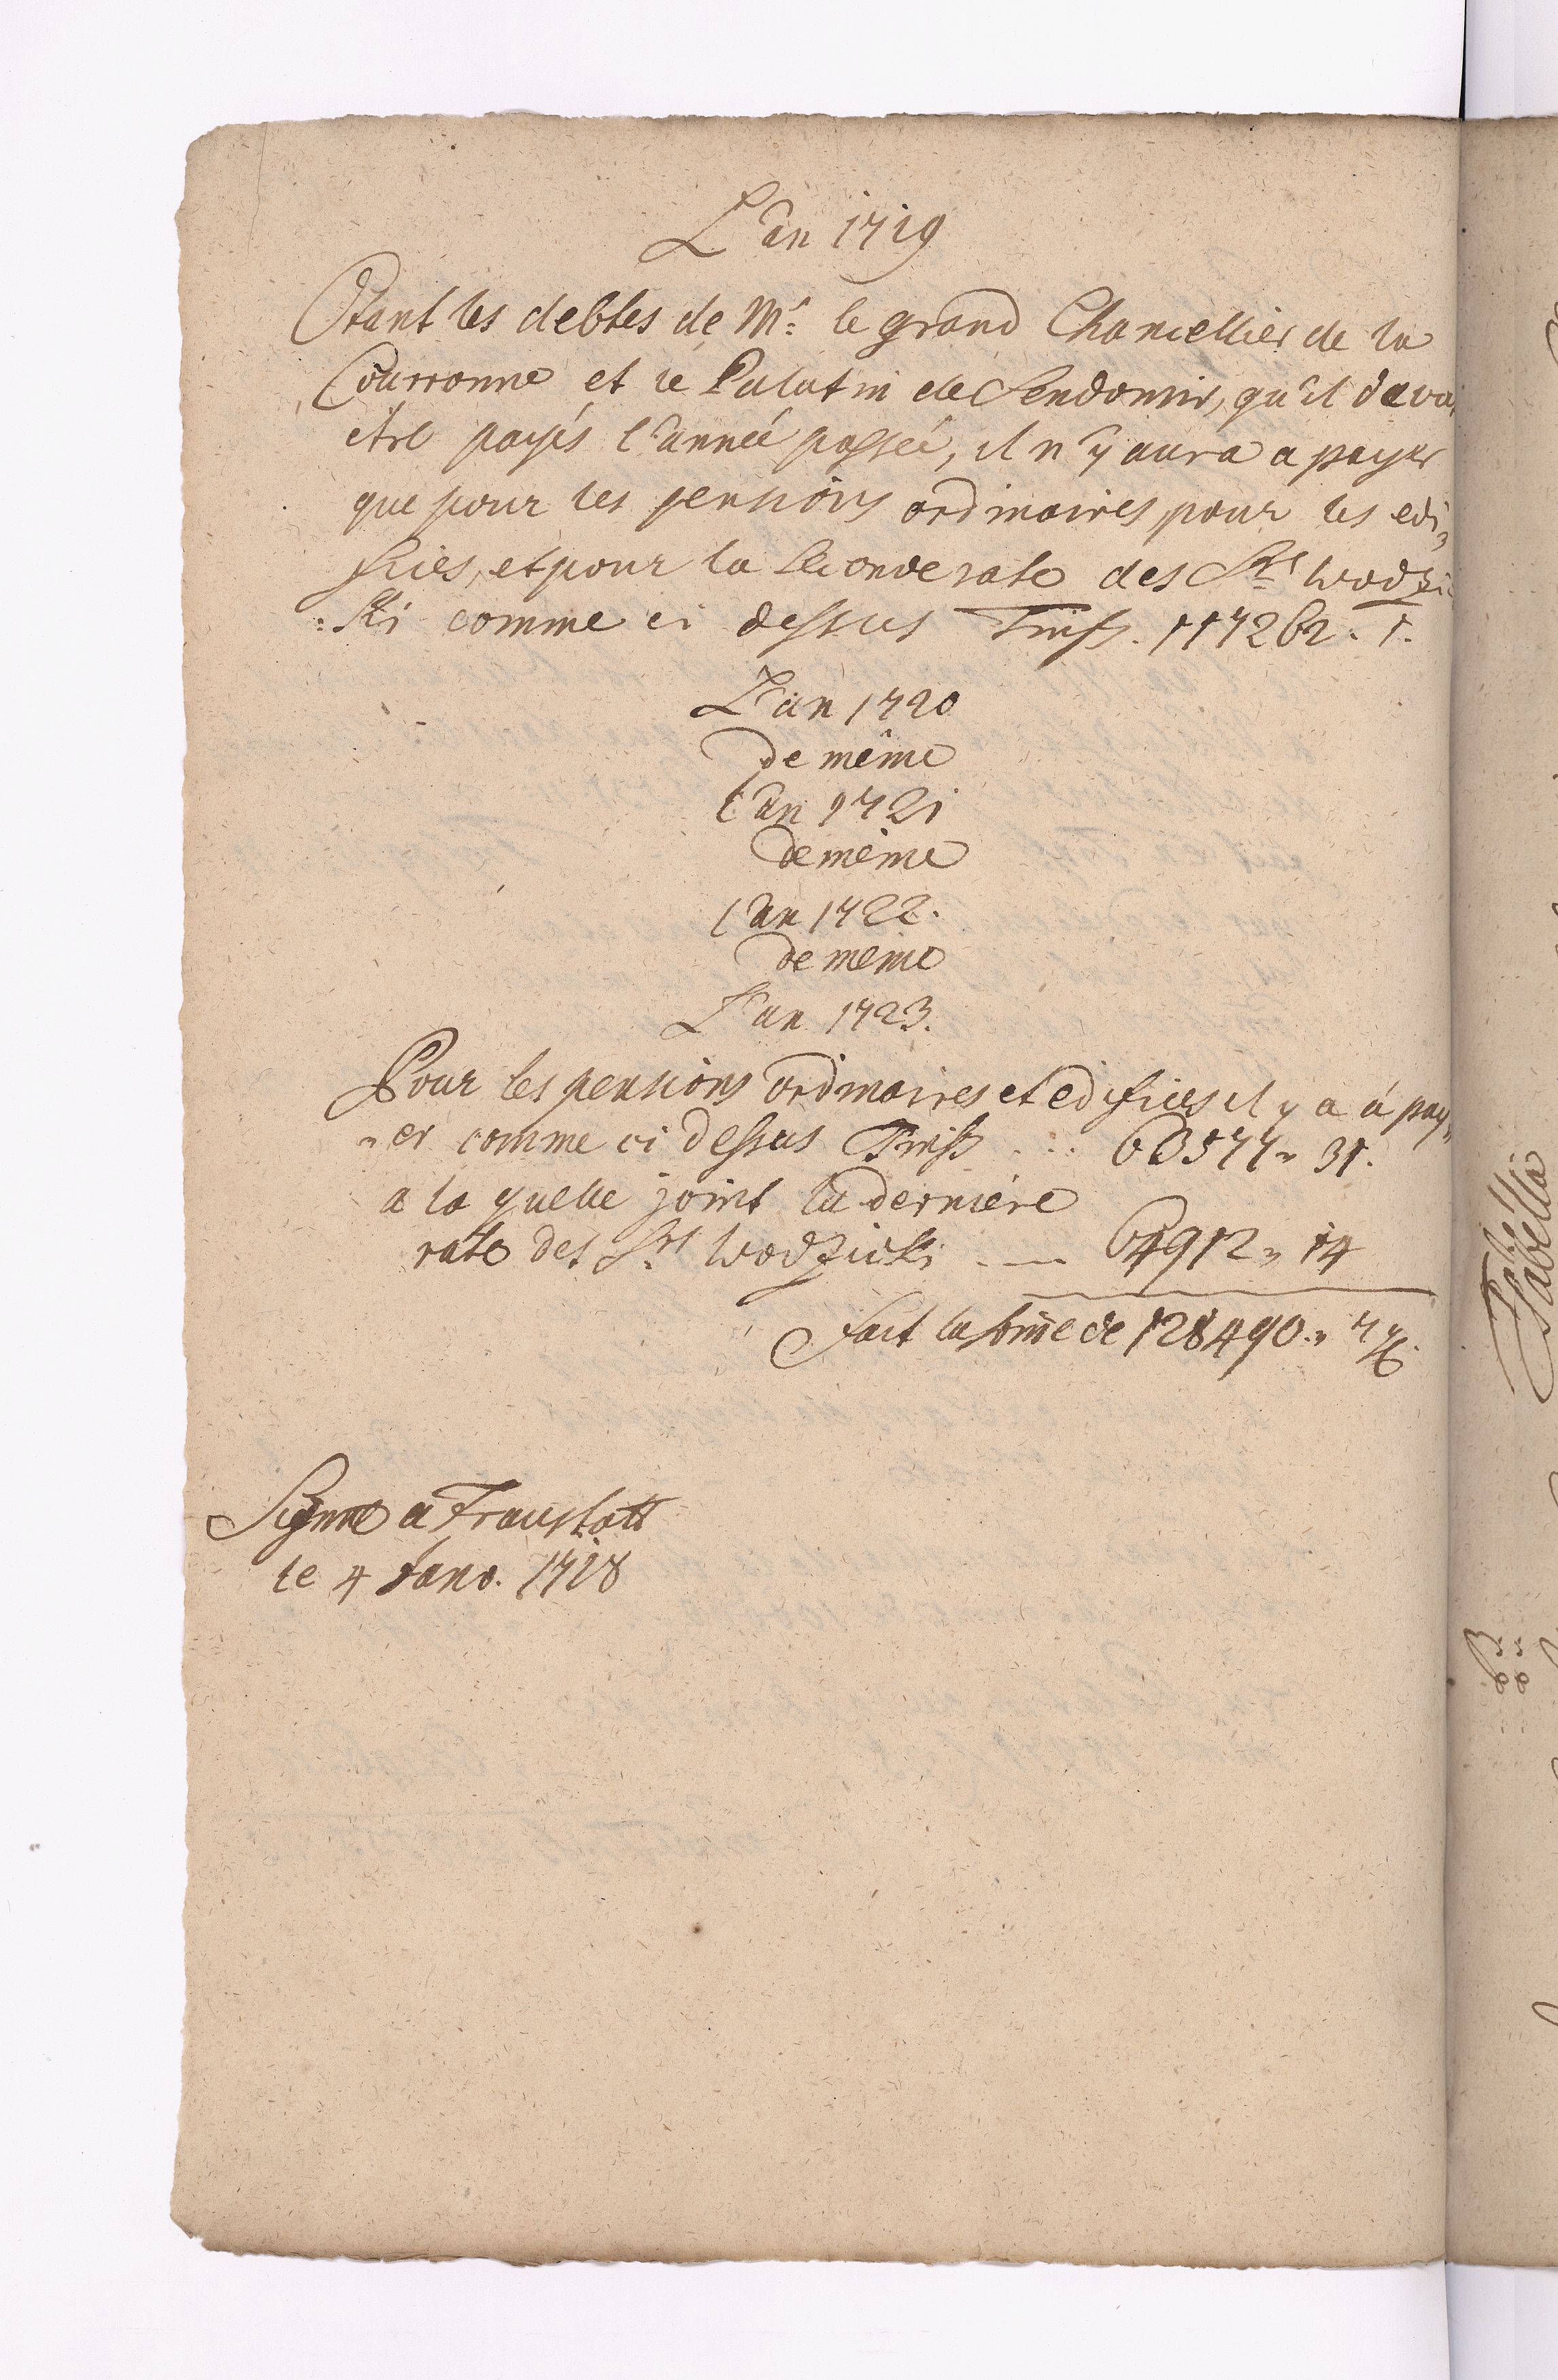 L'an 1719
Otant les debtes de Mr. le grand Chancellier de la
Courronne et le Palatin de Sendomir, qu'il devai
etre payés l'année passée, il n'y aura a payer
que pour les pensions ordinaires pour les edi„
fices, et pour la seconde rate des Srs Wodzi
:ski comme ci dessus Tinff. 117262. 1.
L'an 1720
de même
l'an 1721
de même
l'an 1722.
de meme
L'an 1723.
Pour les pensions ordinaires et edifices il y a á pay„
„er comme ci dessus Tinff ... 63577„ 31.
a la quelle joint la derniére
rate des Srs Wodzicki — 64912„ 14
Fait la some de 128490„ 7
Signé a Fraustatt
le 4 Janv. 1718
Isabella